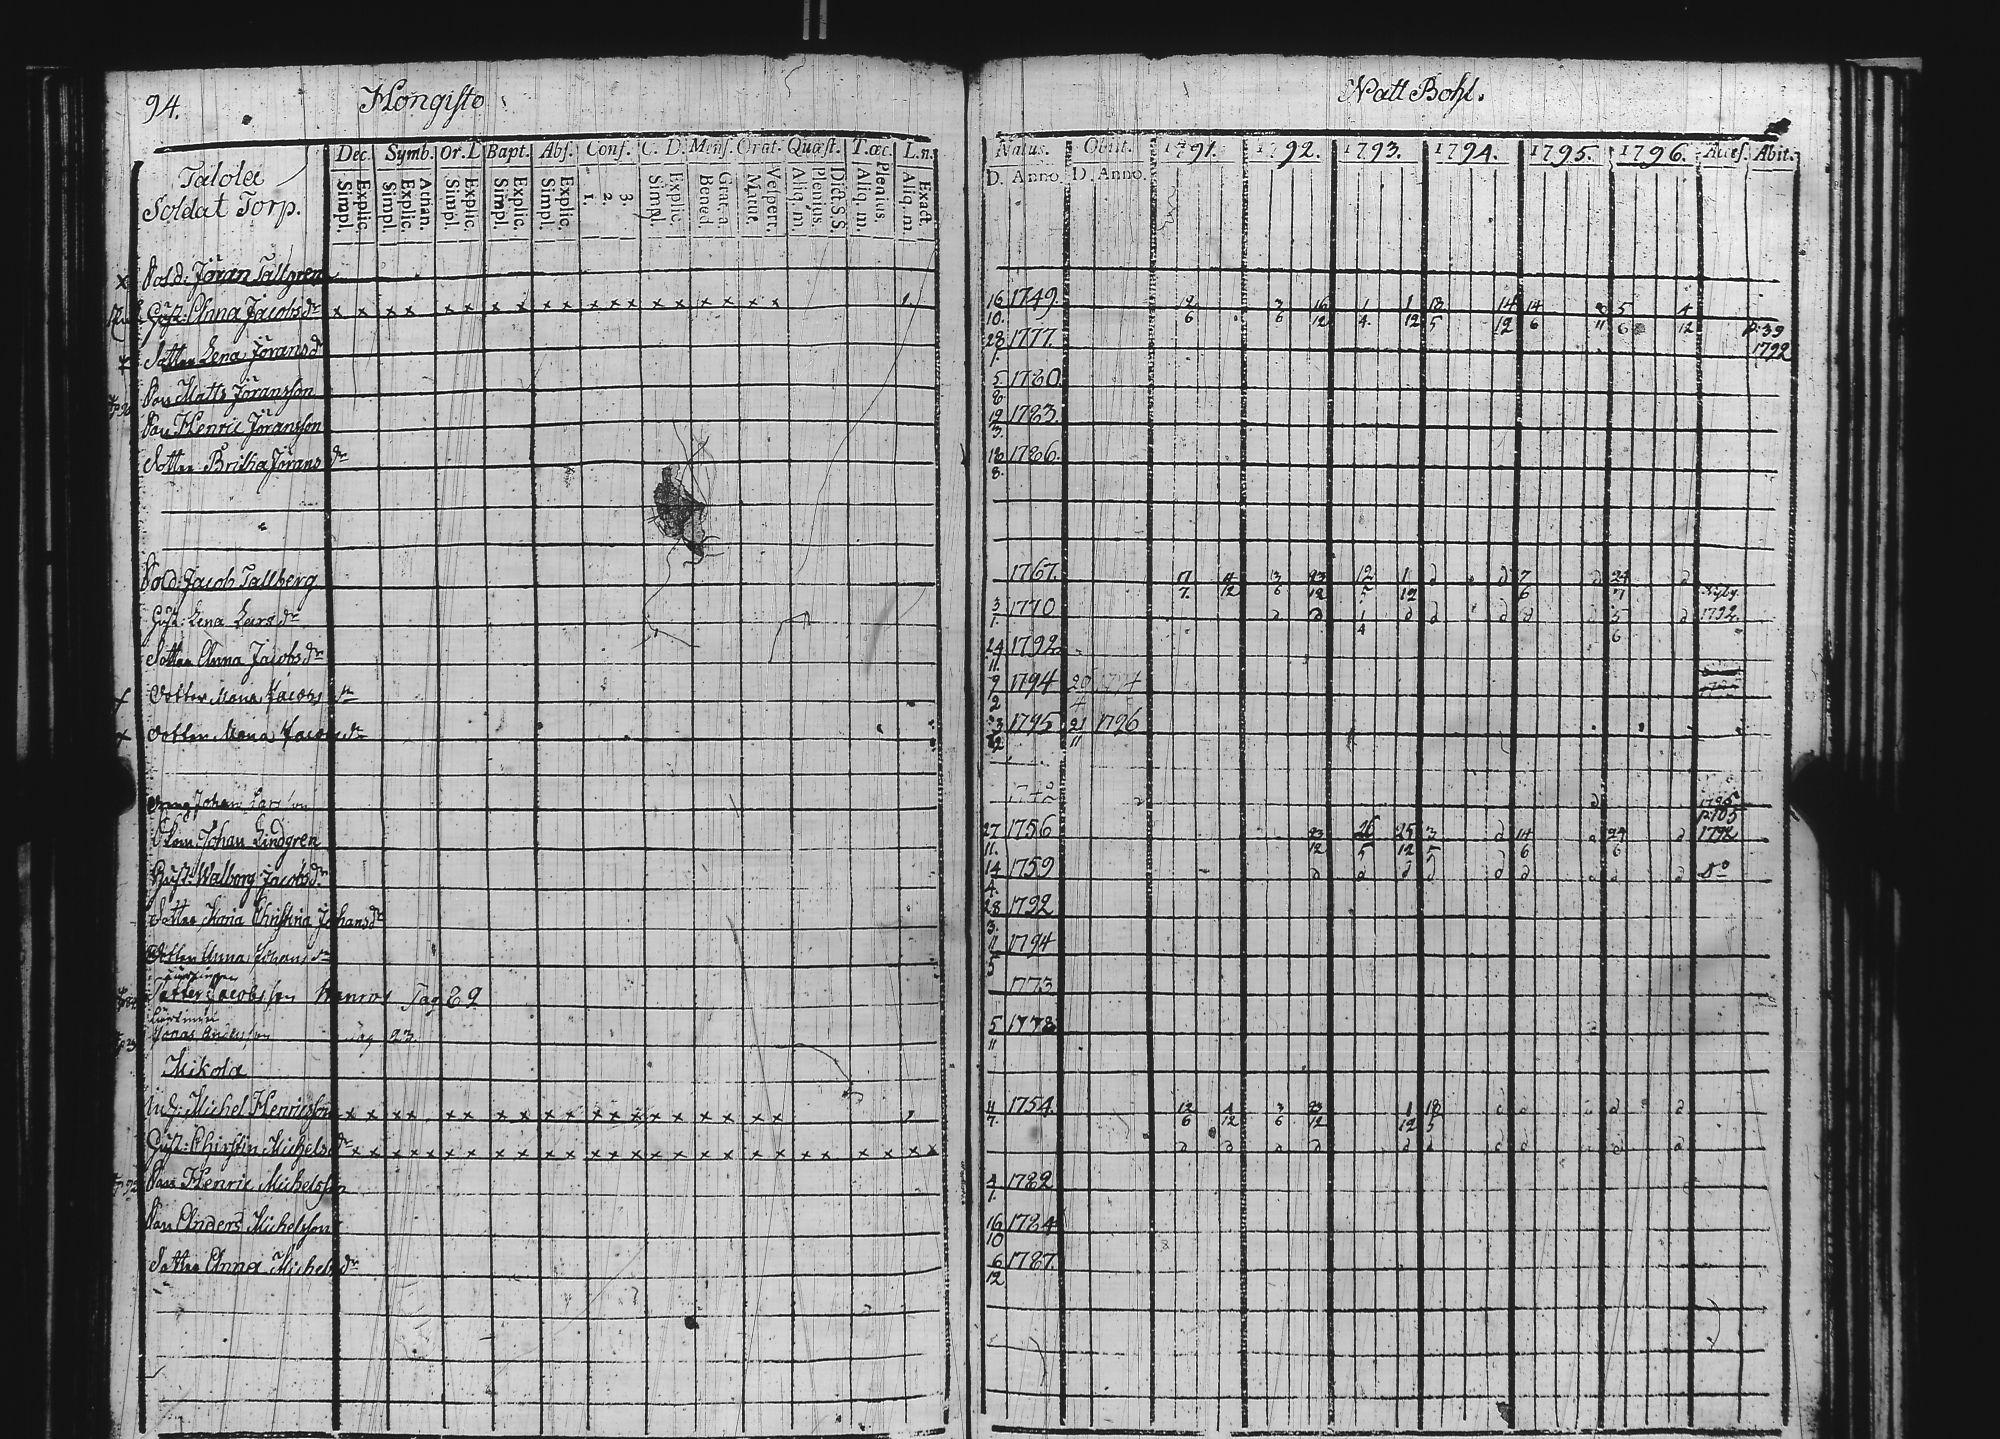 94. Hongisto
Natt Bohl.
Dec. Symb. Or. D Bapt. Abs. Conf. C. D. Mens. Orat. Quæst. T. œc. L.n.
Simpl. Explic. Simpl. Explic. Athan. Simpl. Explic. Simpl. Explic. Simpl. Explic. 1. 2. 3. Simpl. Explic. Bened. Grat. a. Matut. Vespert. Aliq. m. Plenius. Dict. S.S. Aliq. m. Plenius. Aliq. m. Exact.
Natus. Obiit. 1791. 1792. 1793. 1794. 1795. 1796. Acces. Abit.
D. Anno. D. Anno.
Talola
Soldat Torp.
x Sold: Jöran Tallgren
Hust: Anna Jacobsdr x x x x x x x x x x x x x x x x x x x 16 10. 1749. 12 6 3 6 16 12 1 4 1 12 18 5 14 12 14 6 8 11 5 6 4 12 p: 39
Dotter Lena Jöransdr 28 1. 1777. 1792
Son Matts Jöransson 5 8 1780
Son Henric Jöransson 19 3. 1783.
Dotter Britha Jöransdr 18 8. 1786.
Sold: Jacob Tallberg 1767. 7 7. 4 12 3 6 23 12 12 5 1 12 d d 7 6 d 24 7 d
Hust: Lena Larsdr 3 1. 1770 d d 1 4 d d d d d 5 6 d 1792.
Dotter Anna Jacobsdr 24 11. 1792
x Dotter Maria Jacobsdr 9 2 1794 20 4 1794
x Dotter Maria Jacobsdr 1795 21 11 1796
Johan Larsson 1795
Skom: Johan Lindgren 27 11. 1756 23 12 26 5 25 12 3 5 d 14 6 d 24 6 d p: 105 1792
Hust: Walborg Jacobsdr 14 4. 1759 d d d d d d d d d Do
Dotter Maria Christina Johansdr 28 3. 1792
Dotter Anna Johansdr 1794
Jacobsson Pag 89 1773
Jonas Andersson 23 5 11 1778
Mikola
Michel Henricsson x x x x x x x x x x x x x x x x x x x 4 7. 1754. 12 6 4 12 3 6 23 12 1 12 18 5 d d d d
Hust: Chirstin Michelsdr x x x x x x x x x x x x x x x x x x x x x x x x x x d d d d d d d d d d
Son Henric Michelsson 4 1. 1782
Son Anders Michelsson 16 10 1784
Dotter Anna Michelsdr 6 12 1787.